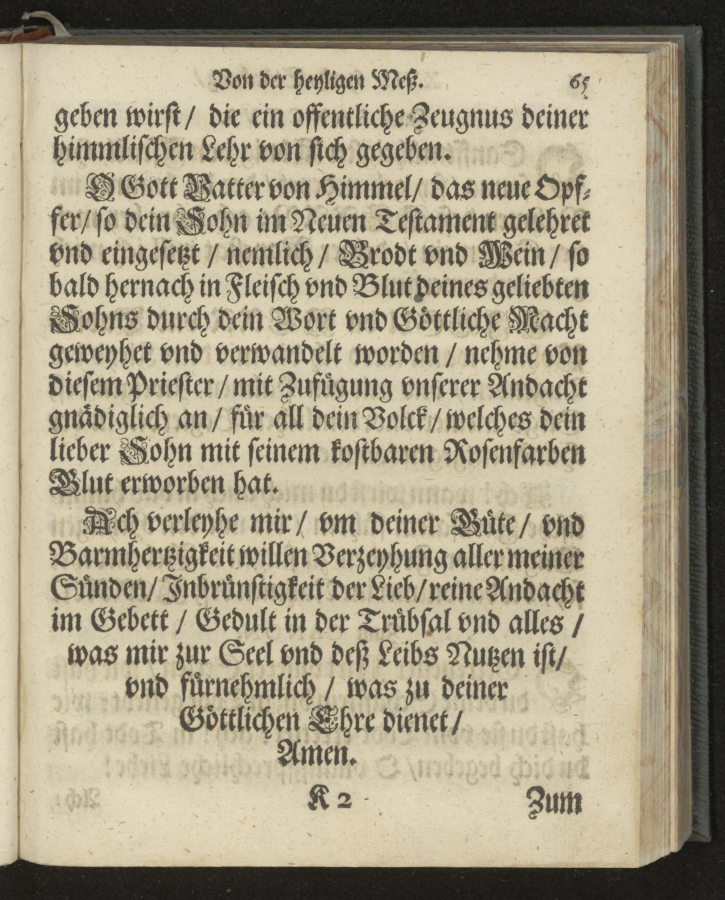 Von der heyligen Meß. 65
geben wirst / die ein offentliche Zeugnus deiner
himmlischen Lehr von sich gegeben.
O Gott Vatter von Himmel / das neue Opf-
fer / so dein Sohn im Neuen Testament gelehret
vnd eingesetzt / nemlich / Brodt vnd Wein / so
bald hernach in Fleisch vnd Blut deines geliebten
Sohns durch dein Wort vnd Göttliche Macht
geweyhet vnd verwandelt worden / nehme von
diesem Priester / mit Zufügung vnserer Andacht
gnädiglich an / für all dein Volck / welches dein
lieber Sohn mit seinem kostbaren Rosenfarben
Blut erworben hat.
Ach verleyhe mir / vm deiner Güte / vnd
Barmhertzigkeit willen Verzeyhung aller meiner
Sünden / Inbrünstigkeit der Lieb / reine Andacht
im Gebett / Gedult in der Trübsal vnd alles /
was mir zur Seel vnd deß Leibs Nutzen ist /
vnd fürnehmlich / was zu deiner
Göttlichen Ehre dienet /
Amen.
K 2 Zum